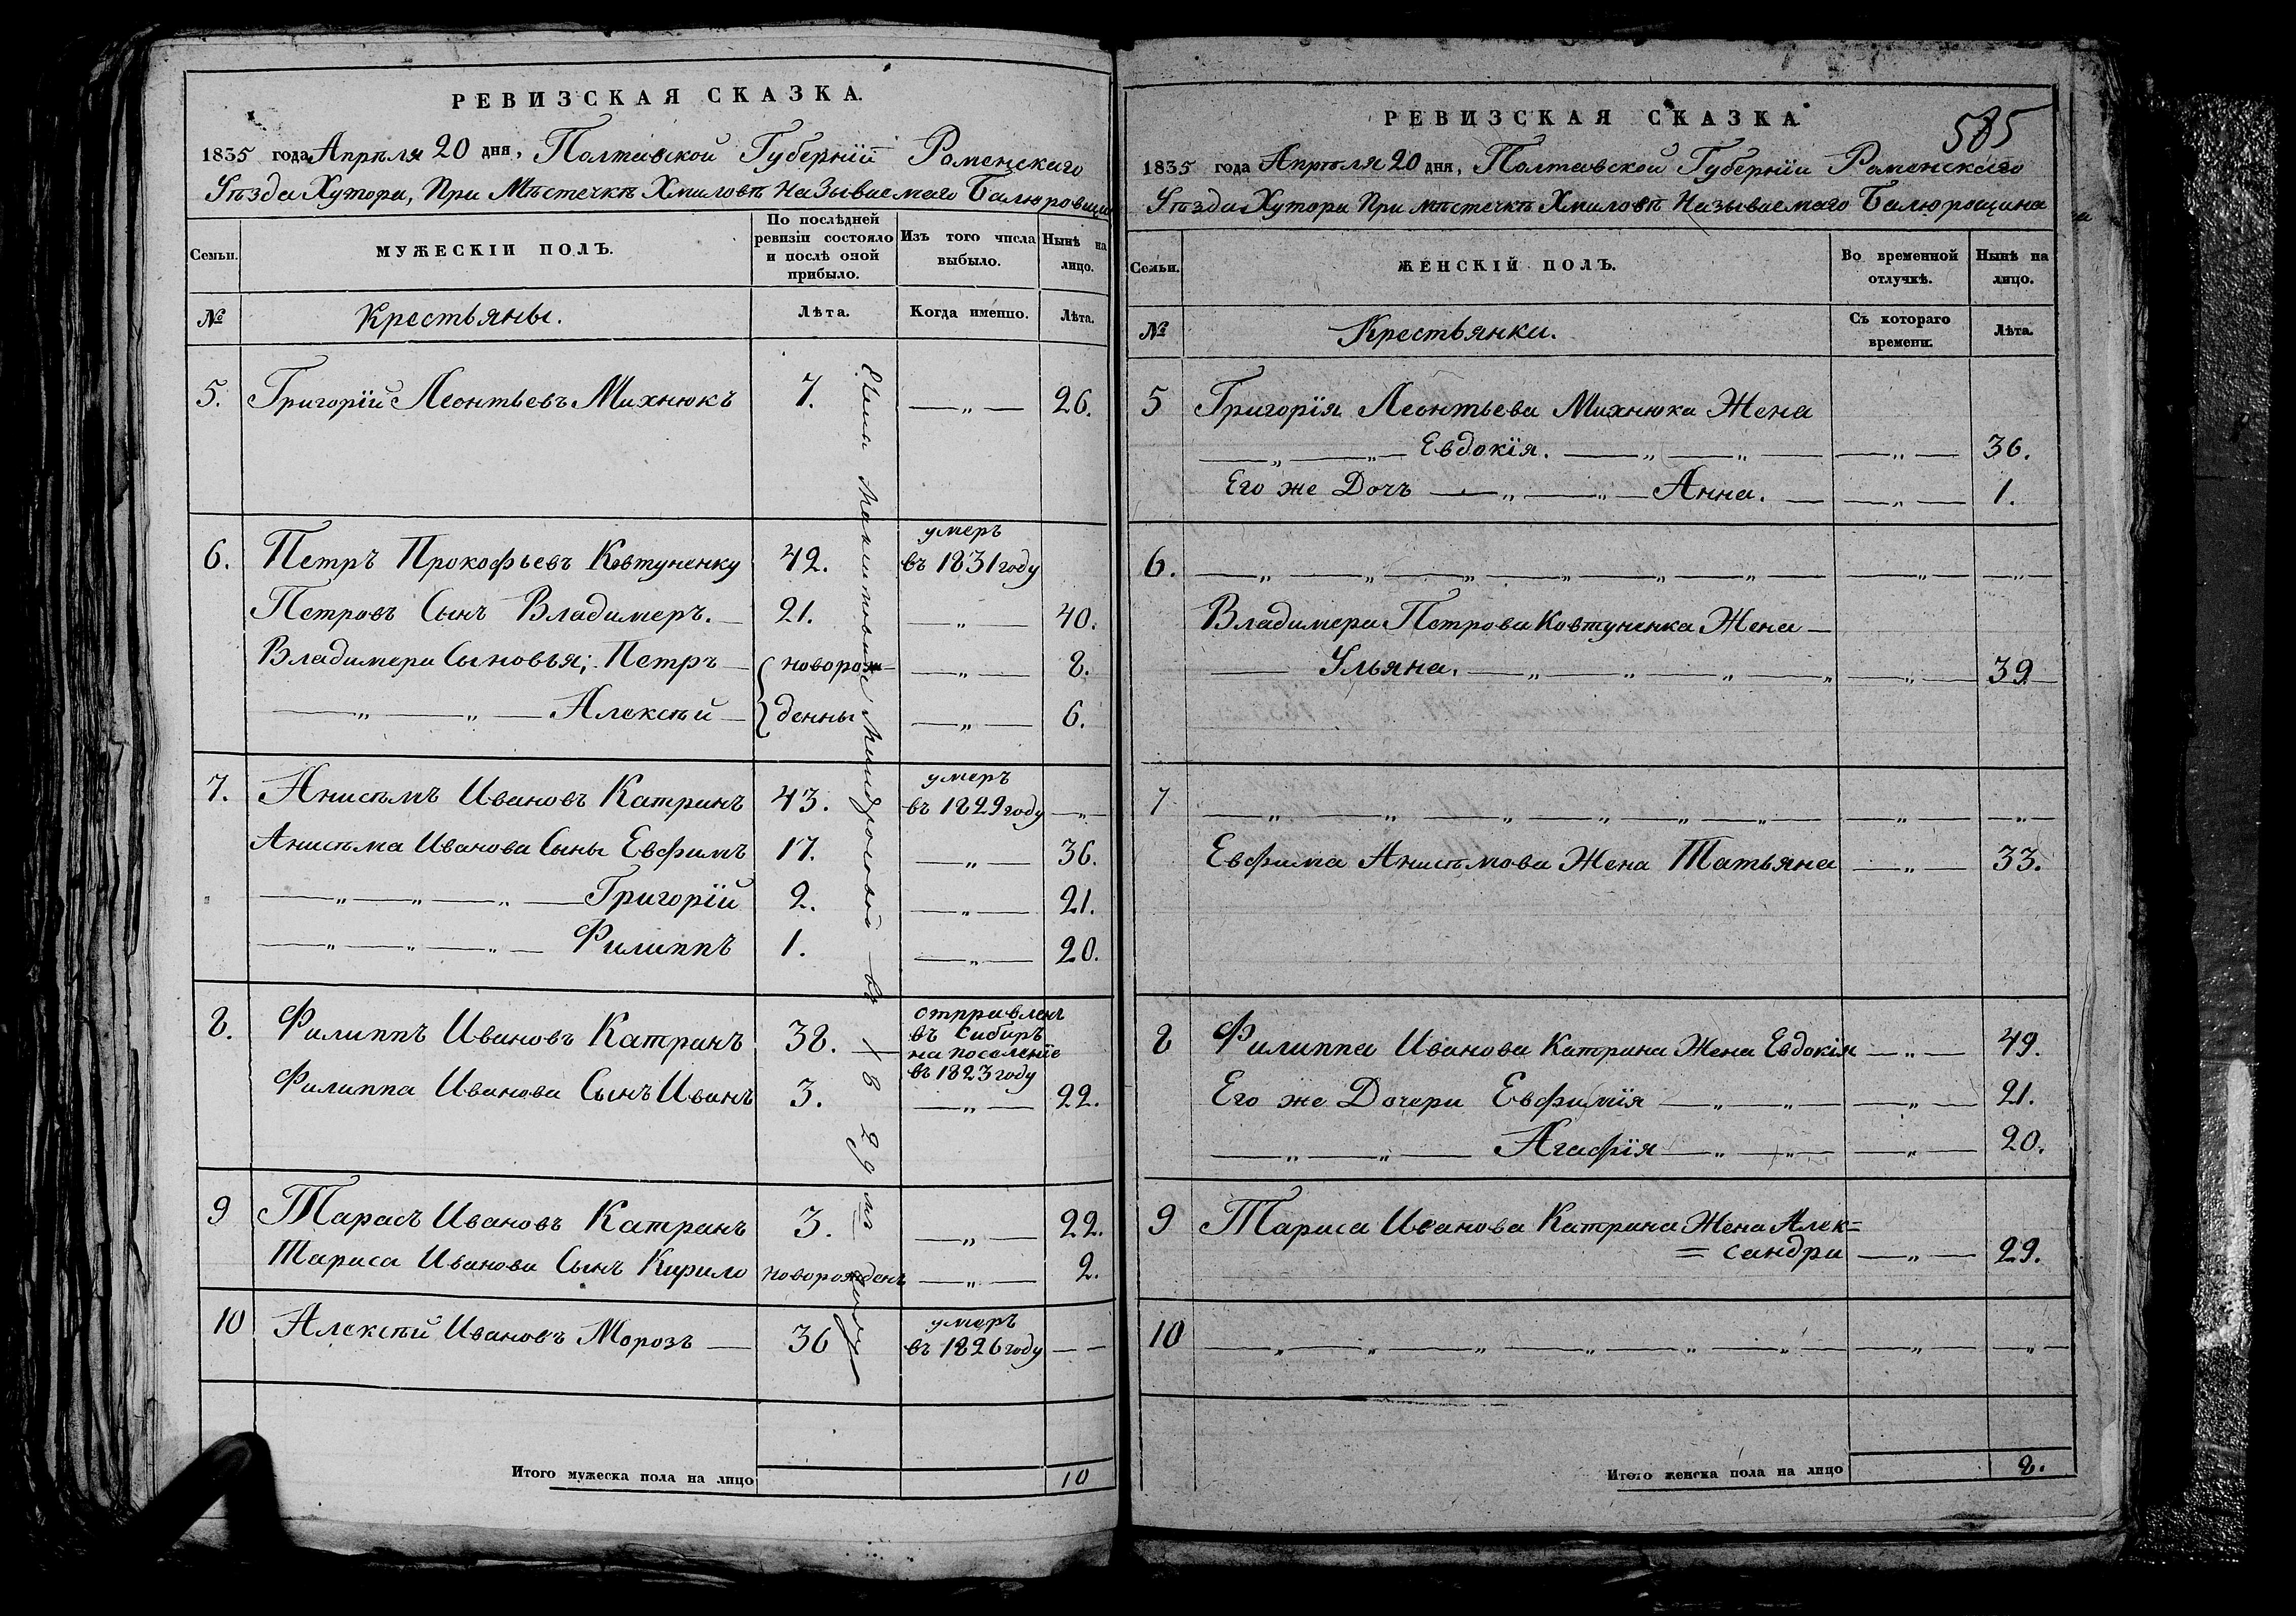 РЕВИЗСКАЯ СКАЗКА.
1835 года Апрѣля 20 дня, Полтавской Губерніи Роменскаго
Уѣзда Хутора, При Мѣстечкѣ Хмиловѣ Называемаго Балюровщина
Семьи.
МУЖЕСКІЙ ПОЛЪ.
По послѣдней ревизіи состояло и послѣ оной прибыло.
Изъ того числа выбыло.
Нынѣ на лицо.
№
Крестьяны.
Лѣта.
Когда именно.
Лѣта.
5. Григорій Леонтьевъ Михнюкъ 7. —„— 26.
умеръ
6. Петръ Прокофьевъ Ковтуненку 42. въ 1831 году
Петровъ Сынъ Владимеръ. — 21. —„— 40.
Владимера Сыновья; Петръ — новорож= —„— 8.
—„—„— Алексѣй — денны —„— 6.
умеръ
7. Анисѣмъ Ивановъ Катранъ 43. въ 1829 году —„—
Анисѣма Иванова Сыны Евфимъ 17. —„— 36.
—„—„—„— Григорій 2. —„— 21.
—„—„—„— Филиппъ 1. —„— 20.
8. Филиппъ Ивановъ Катранъ 38. отправленъ
въ Сибиръ
на поселеніе
въ 1823 году
Филиппа Иванова Сынъ Иванъ 3. —„— 22.
9 Тарасъ Ивановъ Катранъ 3. —„— 22.
Тараса Иванова Сынъ Кирило новорожденъ —„— 2.
умеръ
10 Алексѣй Ивановъ Морозъ — 36 въ 1826 году — —
Итого мужеска пола на лицо 10
585
РЕВИЗСКАЯ СКАЗКА
1835 года Апрѣля 20 дня, Полтавской Губерніи Роменскаго
Уѣзда Хутора При мѣстечкѣ Хмиловѣ Называемаго Балюрощина
Семьи.
ЖЕНСКІЙ ПОЛЪ.
Во временной отлучкѣ.
Нынѣ на лицо.
№
Крестьянки.
Съ котораго времени.
Лѣта.
5 Григорія Леонтьева Михнюка Жена
—„—„— Евдокія. —„—„— —„— 36.
Его же Дочъ —„—„— Анна. — —„— 1.
6. —„—„—„—„—„—„— —„— —„—
Владимера Петрова Ковтуненка Жена —
— Ульяна. —„—„—„—„ —„— 39
7 —„—„—„—„—„—„— —„— —„—
Евфима Анисѣмова Жена Татьяна —„— 33.
8 Филиппа Иванова Катрана Жена Евдокія —„— 49.
Его же Дочери Евфимія —„—„— —„— 21.
—„—„— Агафія —„—„— —„— 20.
9 Тараса Иванова Катрана Жена Алек=
= сандра —„— 29.
10 —„—„—„—„—„—„— —„— —„—
Итого женска пола на лицо 8.